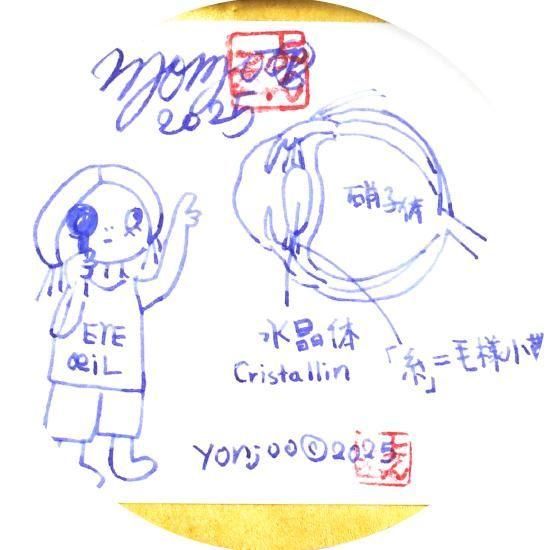 2025
硝子体
EYE
œiL
水晶体
Cristallin
「糸」=毛様小
yonjoo©2025